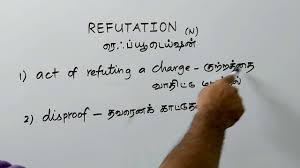 REFUTATION (N)
ரெஃப்யூடெய்ஷன்
1) act of refuting a charge - குற்றத்தை
வாதிட்டு
2) disproof - தவறெனக்